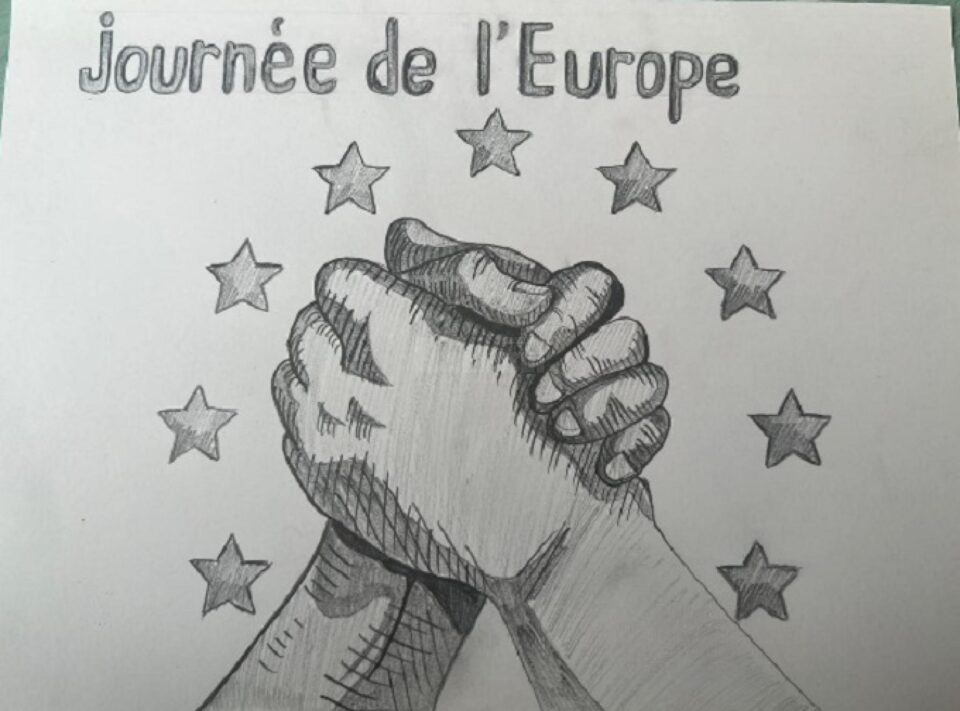 Journée de l'Europe